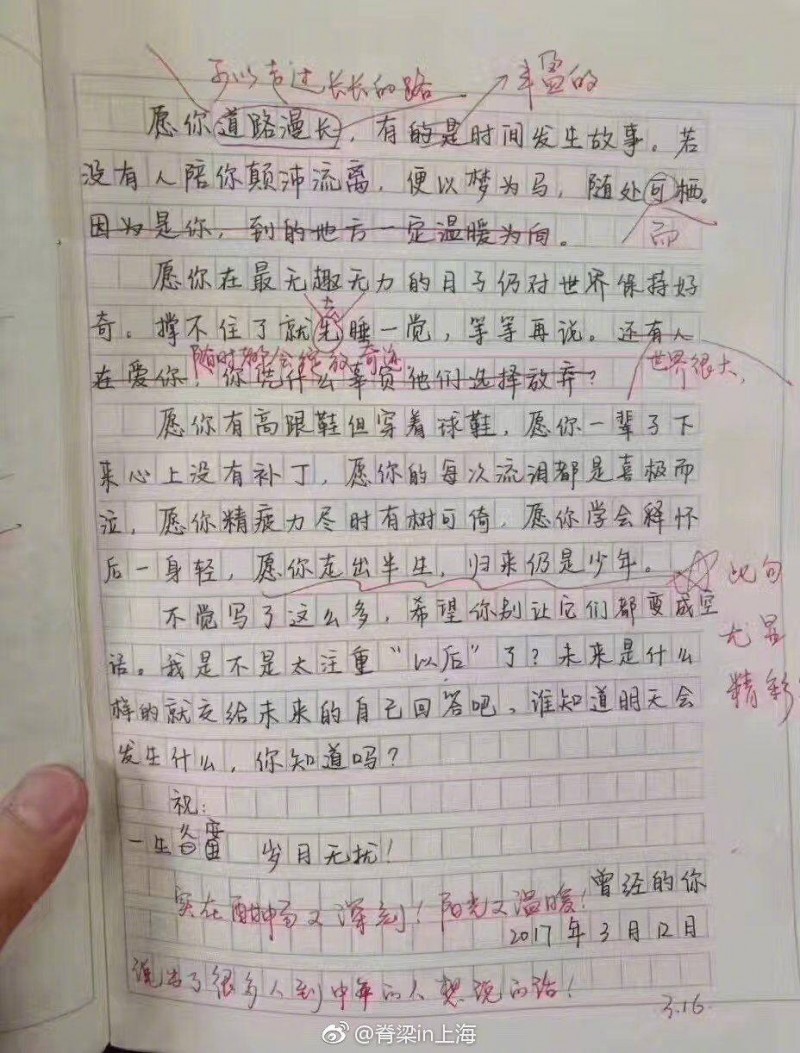 可以走过长长的路 丰盈的
愿你道路漫长，有的是时间发生故事。若
没有人陪你颠沛流离，便以梦为马，随处可栖。
因为是你，到的地方一定温暖为向。 而
愿你在最无趣无力的日子仍对世界保持好
去
奇。撑不住了就先睡一觉，等等再说。还有人
随时都会绽放奇迹 世界很大，
在爱你！你凭什么辜负他们选择放弃？
愿你有高跟鞋但穿着球鞋，愿你一辈子下
来心上没有补丁，愿你的每次流泪都是喜极而
泣，愿你精疲力尽时有树可倚，愿你学会释怀
后一身轻，愿你走出半生，归来仍是少年。
此句
尤显
精彩
不觉写了这么多，希望你别让它们都变成空
话。我是不是太注重“以后”了？未来是什么
样的就交给未来的自己回答吧、谁知道明天会
发生什么，你知道吗？
祝：
一生 岁月无扰！
曾经的你
实在酣畅又深刻！阳光又温暖！
2017年3月12日
说出了很多人到中年的人想说的话！
3.16.
@脊梁in上海